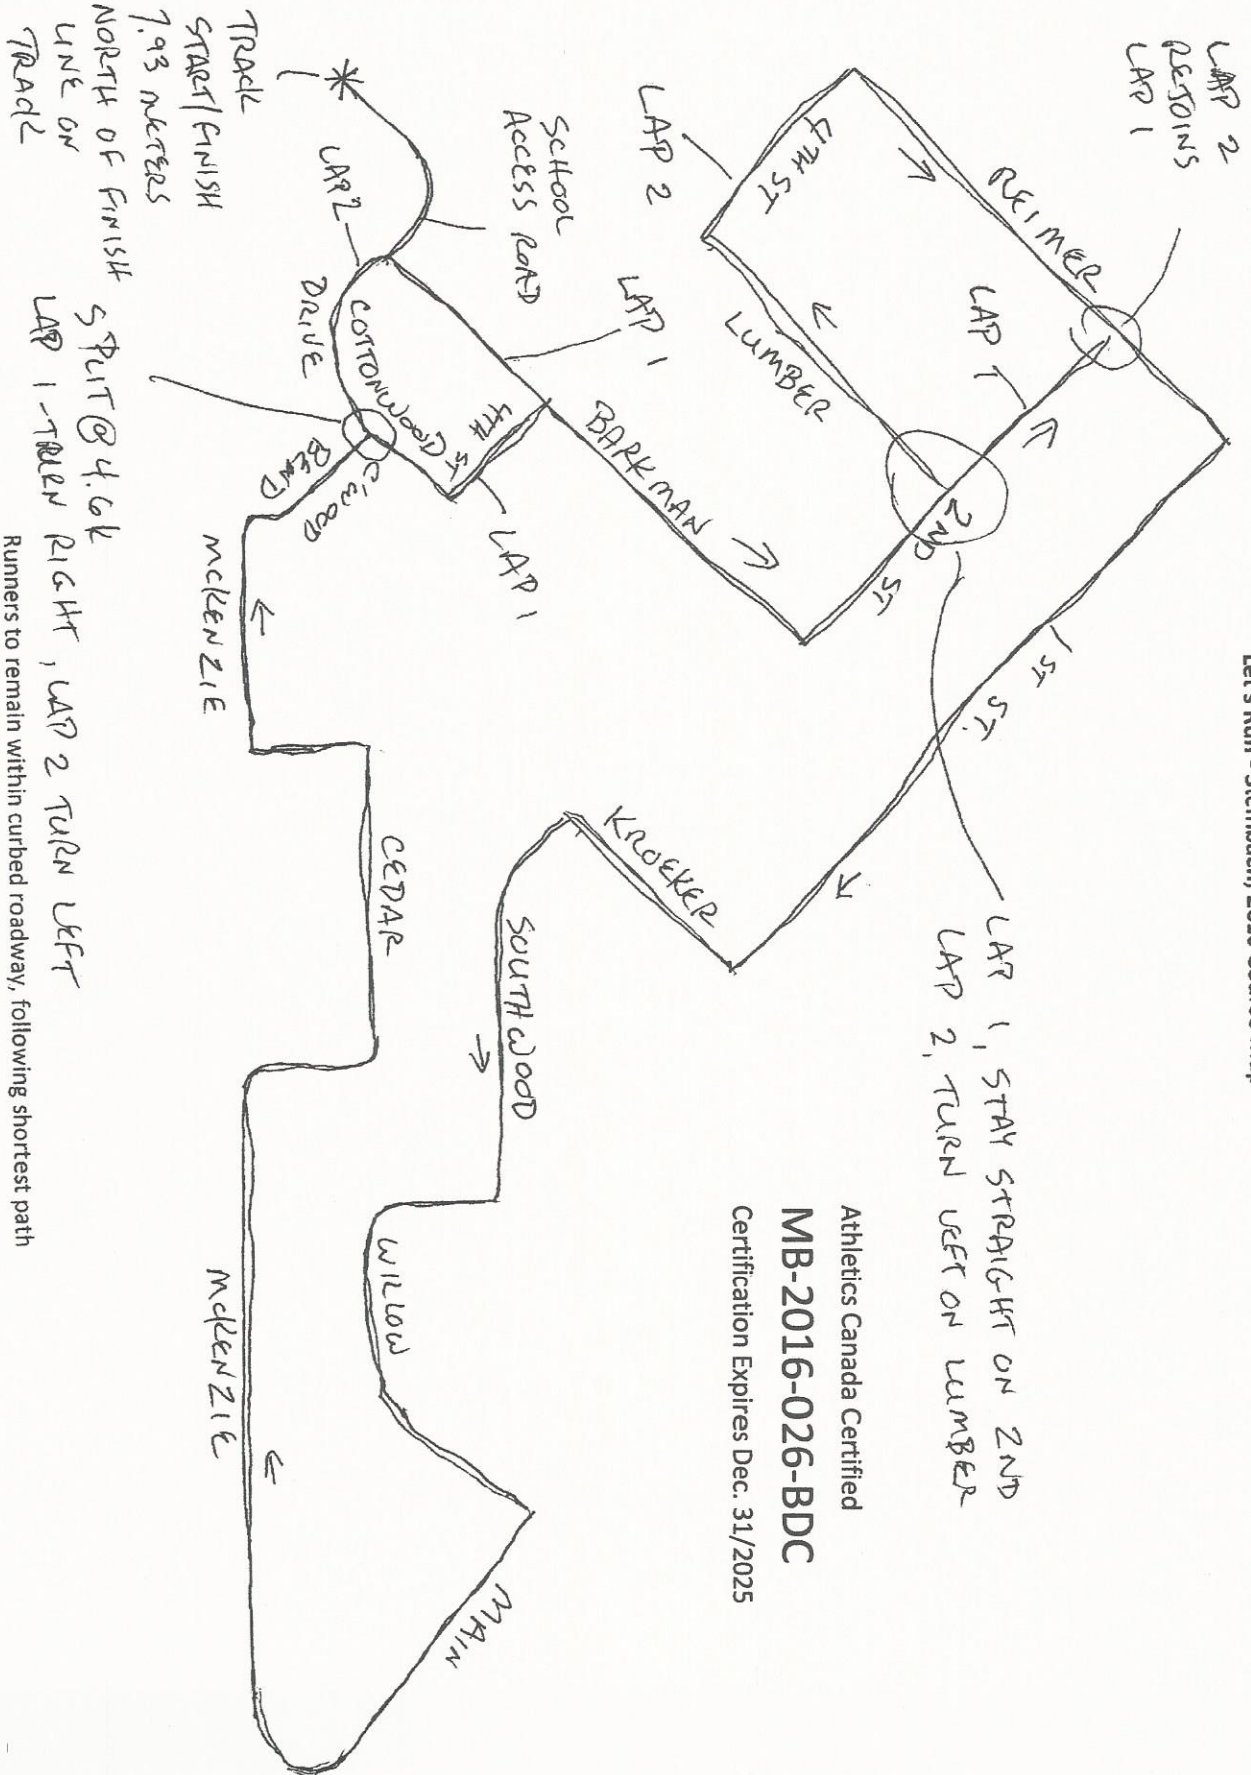 LAP 2
REJOINS
LAP 1
REIMER
LAP 1
4TH ST
LAP 2
LUMBER
2ND ST
1ST ST.
LAP 1, STAY STRAIGHT ON 2ND
LAP 2, TURN LEFT ON LUMBER
Athletics Canada Certified
MB-2016-026-BDC
Certification Expires Dec. 31/2025
SCHOOL
ACCESS ROAD
LAP 1
BARKMAN
KROEKER
SOUTHWOOD
WILLOW
MAIN
LAP 2
COTTONWOOD
DRIVE
4TH ST
LAP 1
C'WOOD
BEND
MCKENZIE
CEDAR
MCKENZIE
TRACK
START/FINISH
7.93 METERS
NORTH OF FINISH
LINE ON
TRACK
SPLIT @ 4.6K
LAP 1 - TURN RIGHT, LAP 2 TURN LEFT
Runners to remain within curbed roadway, following shortest path